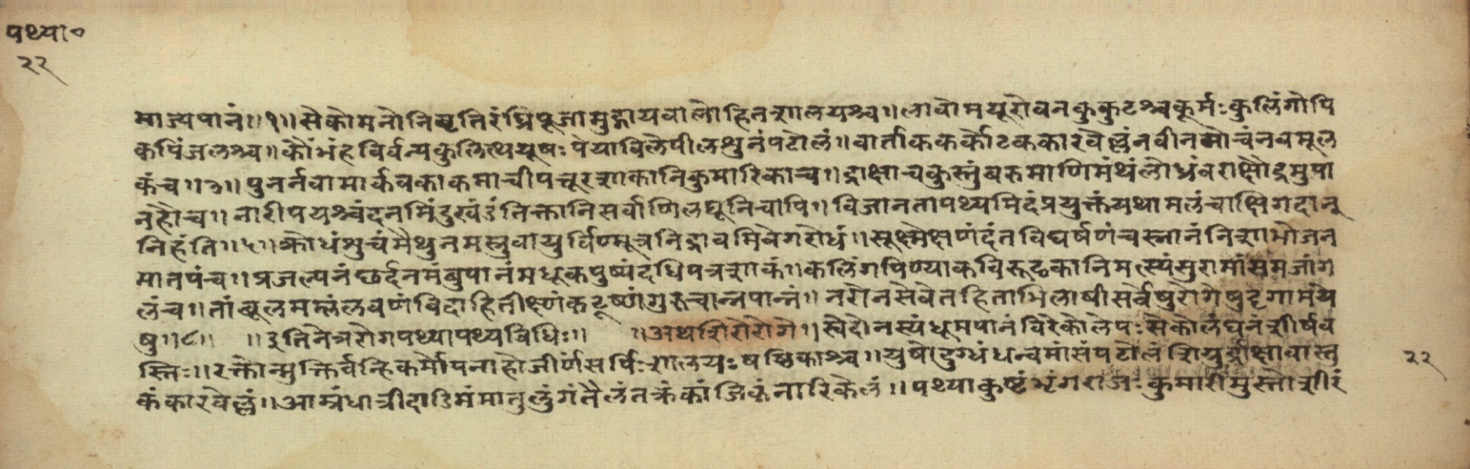 पथ्या०
२२
माज्यपानं॥१॥सेकोमनोनिवृतिरंघ्रिपूजामुद्गायवालोहितशालयश्च॥लावोमयूरोवनकुकुटश्चकूर्मःकुलिंगोपि
कपिंजलश्च॥कौंभंहविर्वन्यकुलित्थयूषःपेयाविलेपीलशुनंपटोलं॥वार्ताककर्कोटककारवेल्लंनवीनमोचंनवमूल
कंच॥३॥पुनर्नवामार्कवकाकमाचीपत्तूरशाकानिकुमारिकाच॥द्राक्षाचकुस्तुंबरुमाणिमंथंलोध्रंवराक्षौद्रमुपा
नहौच॥नारीपयश्चंदनमिंदुखंडंतिक्तानिसर्वाणिलघूनिचापि॥विजानतापथ्यमिदंप्रयुक्तंयथामलंचाक्षिगदान्
निहंति॥५॥क्रोधंशुचंमैथुनमस्रुवायुर्विण्मूत्रनिद्रावमिवेगरोधं॥सूक्ष्मेक्षणंदंतविघर्षणंचस्नानंनिशाभोजन
मातपंच॥प्रजल्पनंछर्दनमंबुपानंमधूकपुष्पंदधिपत्रशाकं॥कलिंगपिण्याकविरूढकानिमत्स्यंसुरामांसमजांग
लंच॥तांबूलमम्लंलवणंविदाहितीक्ष्णंकटूष्णंगुरुचान्नपानं॥नरोनसेवेतहिताभिलाषीसर्वेषुरोगेषुदृगामये
षु॥८॥ ॥इतिनेत्ररोगपथ्यापथ्यविधिः॥ ॥अथशिरोरोगे॥स्वेदोनस्यंधूमपानंविरेकोलेपःसेकोलंघनंशीर्षव
स्तिः॥रक्तोन्मुक्तिर्वन्हिकर्मोपनाहोजीर्णंसर्पिःशालयःषष्ठिकाश्च॥यूषोदुग्धंधन्वमांसंपटोलंशिग्रुर्द्राक्षावास्तु
२२
कंकारवेल्लं॥आम्रंधात्रीदाडिमंमातुलुंगंतैलंतक्रंकांजिकंनारिकेलं॥पथ्याकुष्टंभृंगराजःकुमारीमुस्तोशीरं